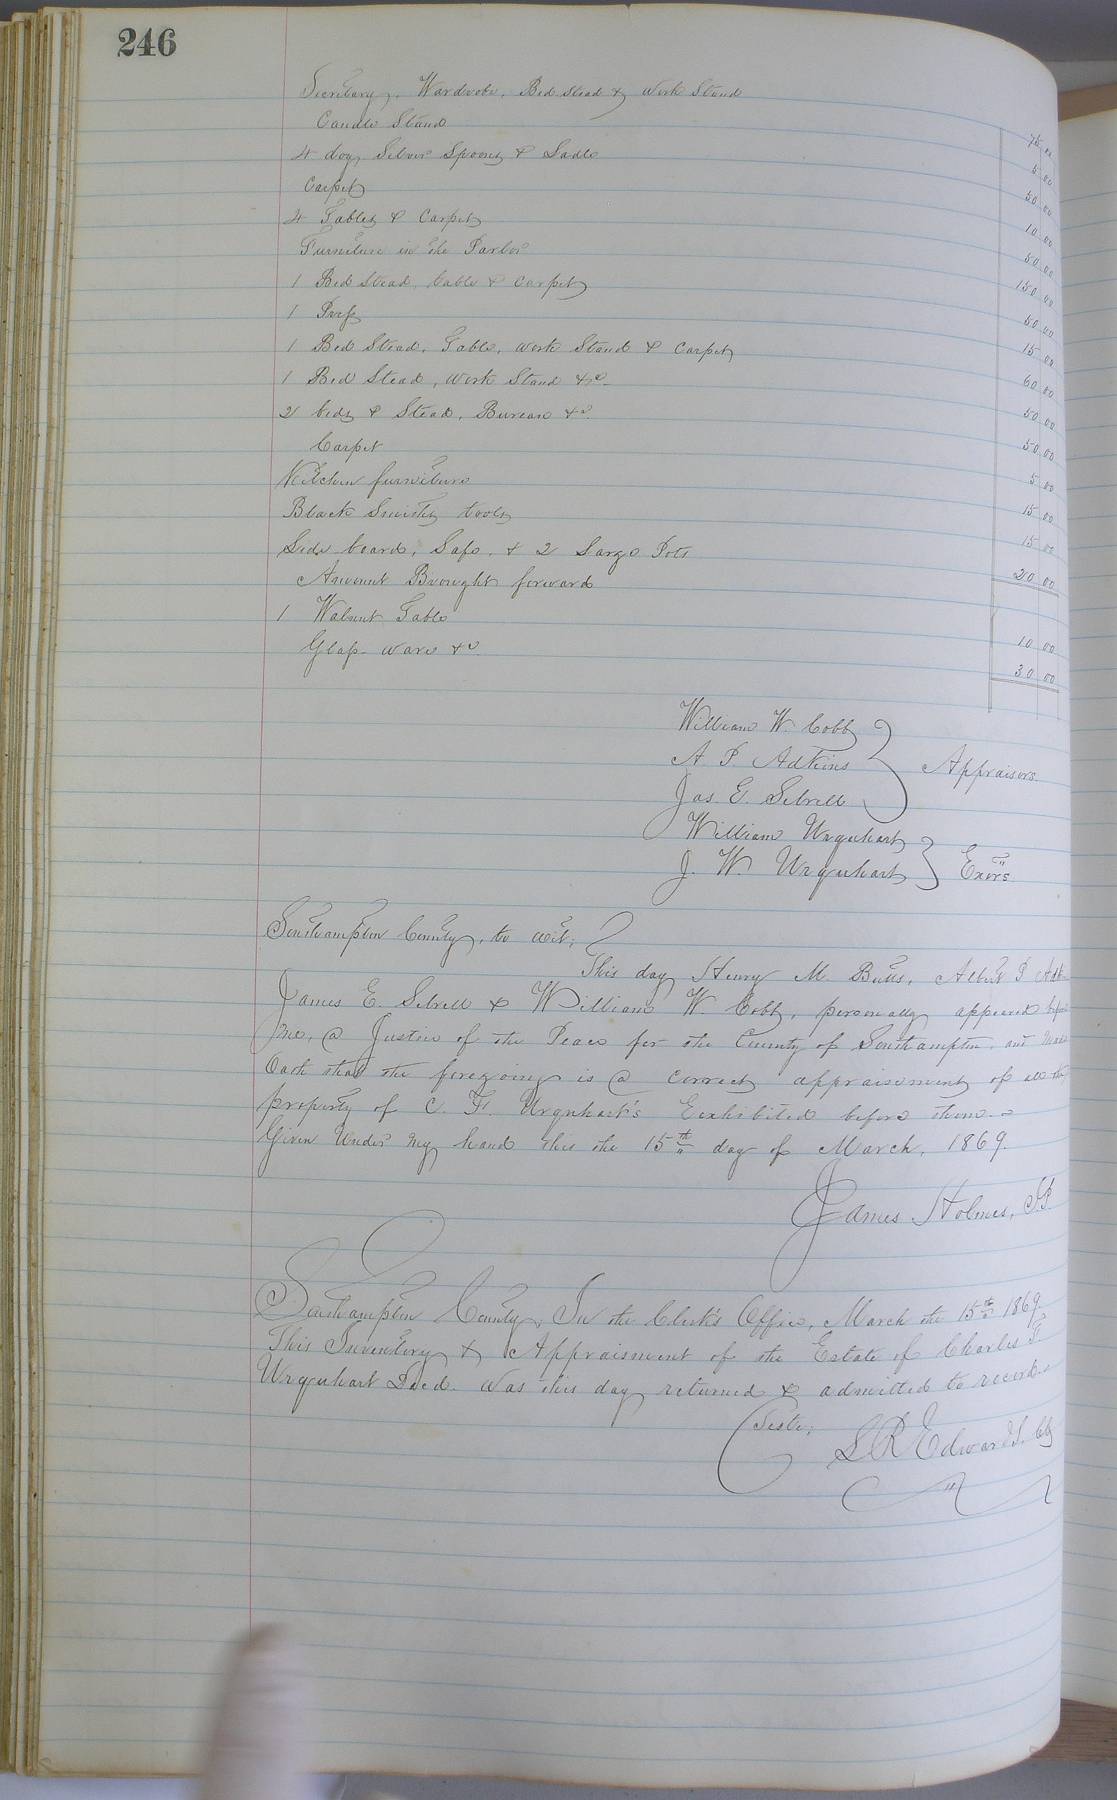 246
Secretary, Wardrobe, Bed Stead & Work Stand 75 00
Candle Stand 5 00
4 doz Silver Spoons & Ladle 50 00
Carpet 10 00
4 Tables & Carpet 50 00
Furniture in the Parlor 150 00
1 Bed Stead, table & Carpet 50 00
1 Press 15 00
1 Bed Stead, Table, Work Stand & Carpet 60 00
1 Bed Stead, Work Stand &c 50 00
2 beds & Stead, Bureau &c 50 00
Carpet 5 00
Kitchen furniture 15 00
Black Smiths tools 15 00
Side board, Safe, & 2 Large Pots 20 00
Amount Brought forward
1 Walnut Table 10 00
Glass ware &c 30 00
William W. Cobb
A. P. Adkins } Appraisers
Jas. E. Sebrell
William Urquhart
J. W. Urquhart } Exors
Southampton County, to wit;
This day Henry M. Butts, Albert P Adkins
James E. Sebrell & William W. Cobb, personally appeared before
me, a Justice of the Peace for the County of Southampton, and made
Oath that the foregoing is a correct appraisement of all the
property of C. F. Urquhart's Exhibited before them.
Given Under my hand this the 15th day of March, 1869.
James Holmes, J.P.
Southampton County, In the Clerk's Office, March the 15th 1869.
This Inventory & Appraisment of the Estate of Charles F.
Urquhart Decd. was this day returned & admitted to record.
Teste;
L R Edwards, Clk